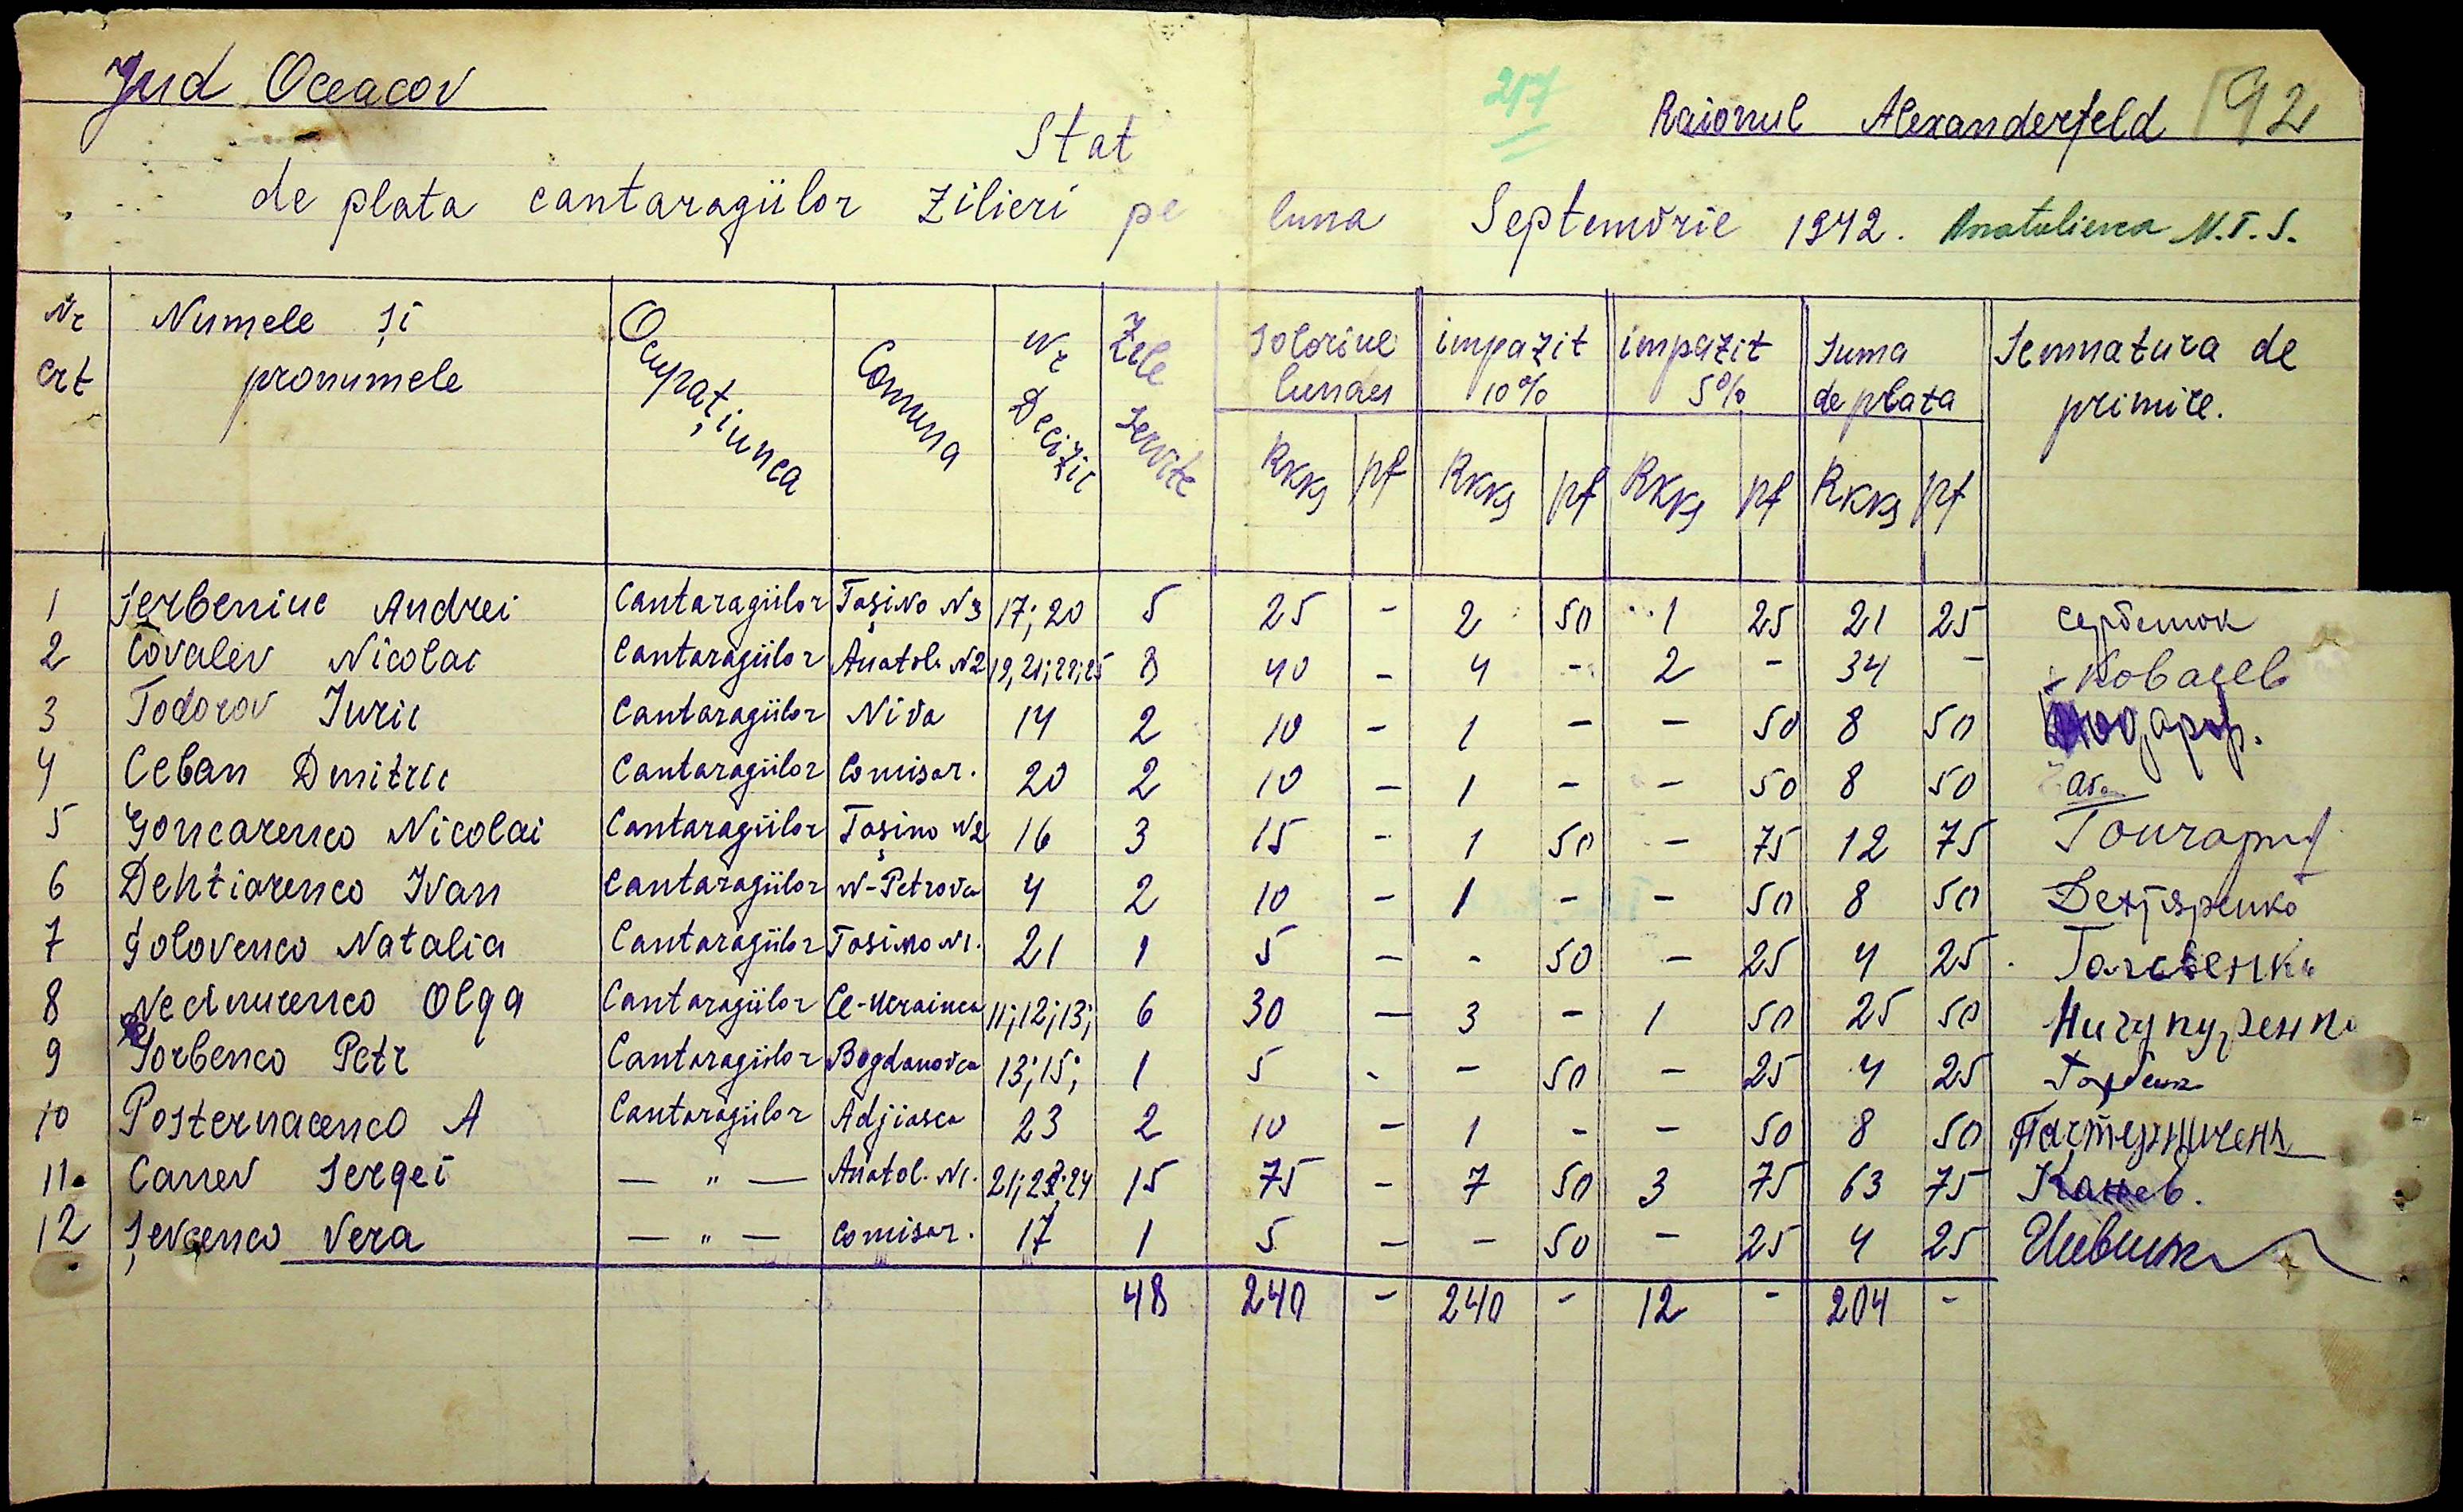 Jud Oceacov
217 Raionul Alexanderfeld 92
Stat
de plata cantaragiilor zilieri pe luna Septemvrie 1942. Anatolievca M.T.S.
Nr crt | Numele și pronumele | Ocupațiunea | Comuna | Nr Decizic | Zile Servite | Soloriul lundes | impazit 10% | impazit 5% | Suma de plata | Semnatura de primire.
RKKS | pf | RKKS | pf | RKKS | pf | RKKS | pf
1 Serbeniuc Andrei Cantaragiilor Tașino N3 17; 20 5 25 - 2 50 1 25 21 25 Сербенюк
2 Covalev Nicolai Cantaragiilor Anatol. N2 19, 21; 22; 25 8 40 - 4 - 2 - 34 - Ковалев
3 Todorov Iurii Cantaragiilor Niva 14 2 10 - 1 - - 50 8 50
4 Ceban Dmitrii Cantaragiilor Comisar. 20 2 10 - 1 - - 50 8 50
5 Goncarenco Nicolai Cantaragiilor Tașino N2 16 3 15 - 1 50 - 75 12 75
6 Dehtiarenco Ivan Cantaragiilor N-Petrovca 4 2 10 - 1 - - 50 8 50 Дехтяренко
7 Golovenco Natalia Cantaragiilor Tașino N1. 21 1 5 - - 50 - 25 4 25
8 Necipurenco Olga Cantaragiilor C-Ucrainca 11; 12; 13; 6 30 - 3 - 1 50 25 50 Ничупуренко
9 Gorbenco Petr Cantaragiilor Bogdanovca 13; 15; 1 5 - - 50 - 25 4 25 Горбенк
10 Posternacenco A Cantaragiilor Adjiasca 23 2 10 - 1 - - 50 8 50
11. Canev Sergei — " — Anatol. N1. 21; 23; 24 15 75 - 7 50 3 75 63 75 Канев.
12 Șevcenco Vera — " — Comisar. 17 1 5 - - 50 - 25 4 25
48 240 - 240 - 12 - 204 -